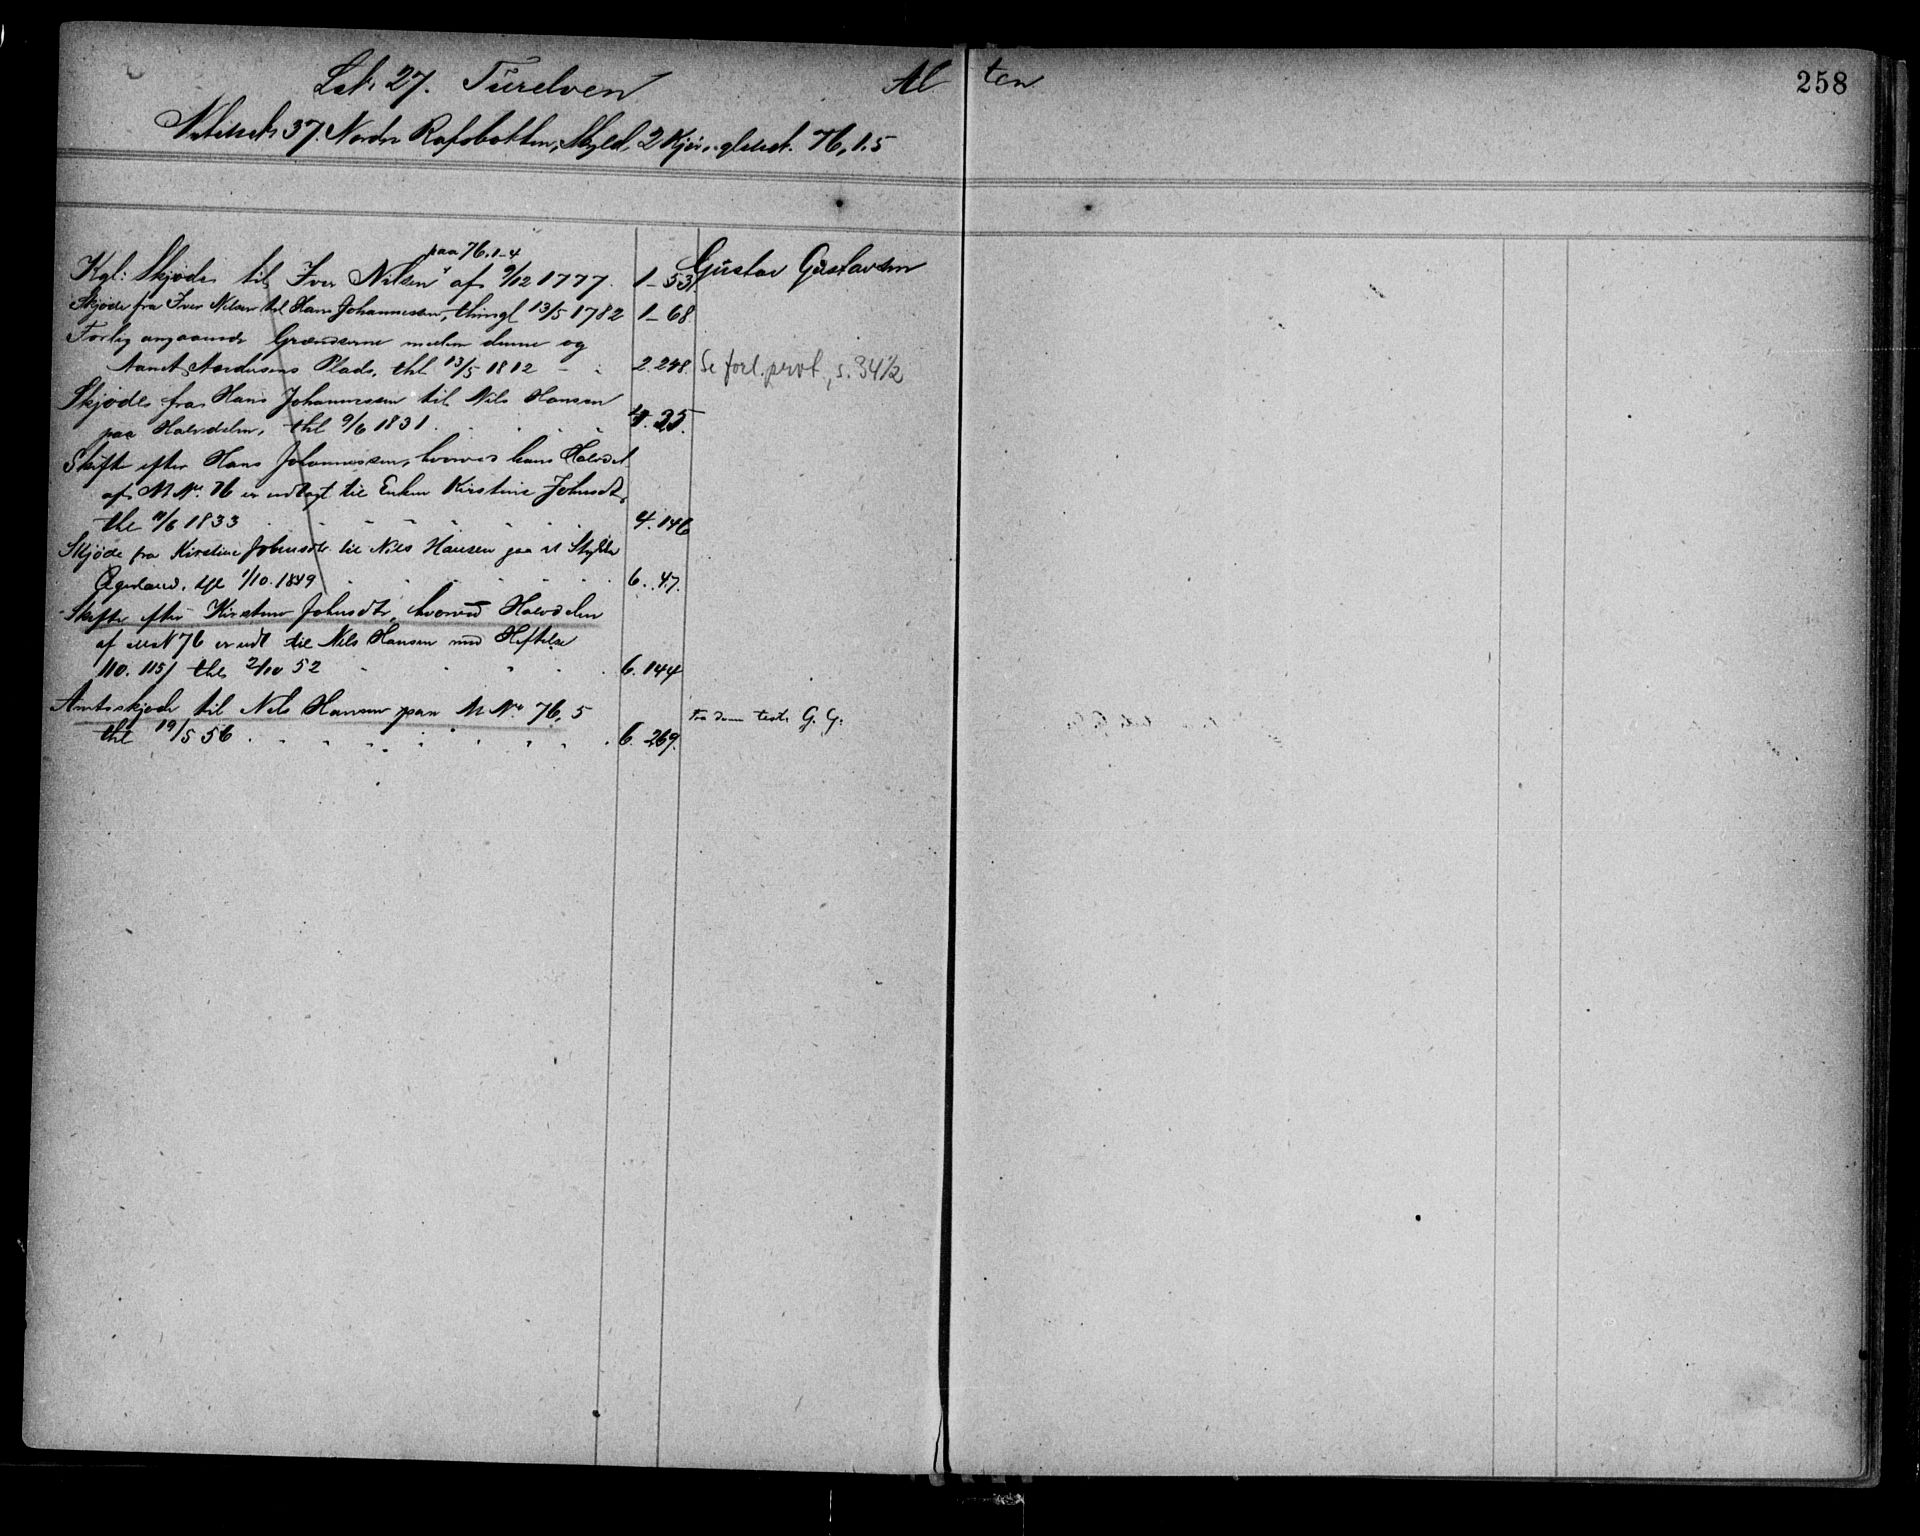 258
L.nr. 27. Türelven Al ten
37. Nordre Rafsbotten, Skyld 2 76, 1.5
paa 76.1-4
Kgl: Skjøde til Iver Nilsen af 9/12 1777. 1-53. Güstav Güstavsen
Skjøde fra Iver Nilsen til Hans Johannessen, thingl 13/5 1782 1-68
Forlig angaaende Grændserne mellem denne og
Plads, thl 13/5 1812 2.248. Se forl.prot., s. 34 1/2
Skjøde fra Hans Johannessen til Nils Hansen
paa Halvdelen, thl 9/6 1831. 4.25.
Skifte efter Hans Johannessen, hvorved hans Halvdel
af M No. 76 er udlagt til Enken Kirstine Johnsdtr,
thl 11/6 1833 4.146
Skjøde fra Kirstine Johnsdtr til Nils Hansen paa et Stykke
Agerland, tgl 1/10.1849 6.47.
Skifte efter Kirstine Johnsdtr, hvorved Halvdelen
af Mat N 76 er udl til Nils Hansen med Heftelse
110. 115/ thl 2/10 52 6.144
Amtsskjøde til Nils Hansen paa M No. 76, 5
thl 19/5 56 6.269. G. G: